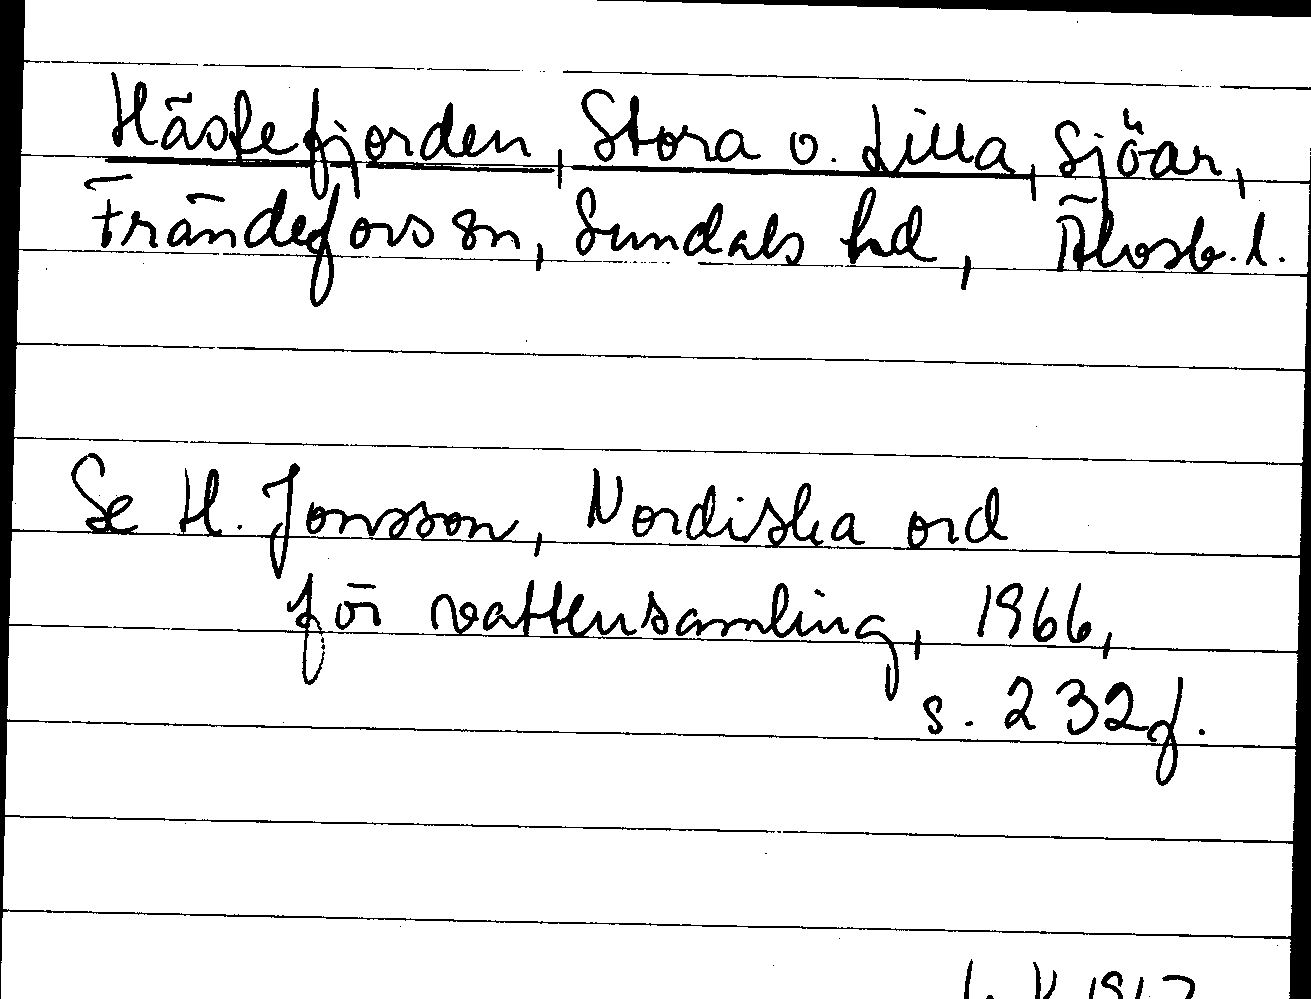 Hästefjorden, Stora o. Lilla, sjöar,
Frändefors sn, Sundals hd, Älvsb. l.
Se H. Jonsson, Nordiska ord
för vattensamling, 1966,
s. 232f.